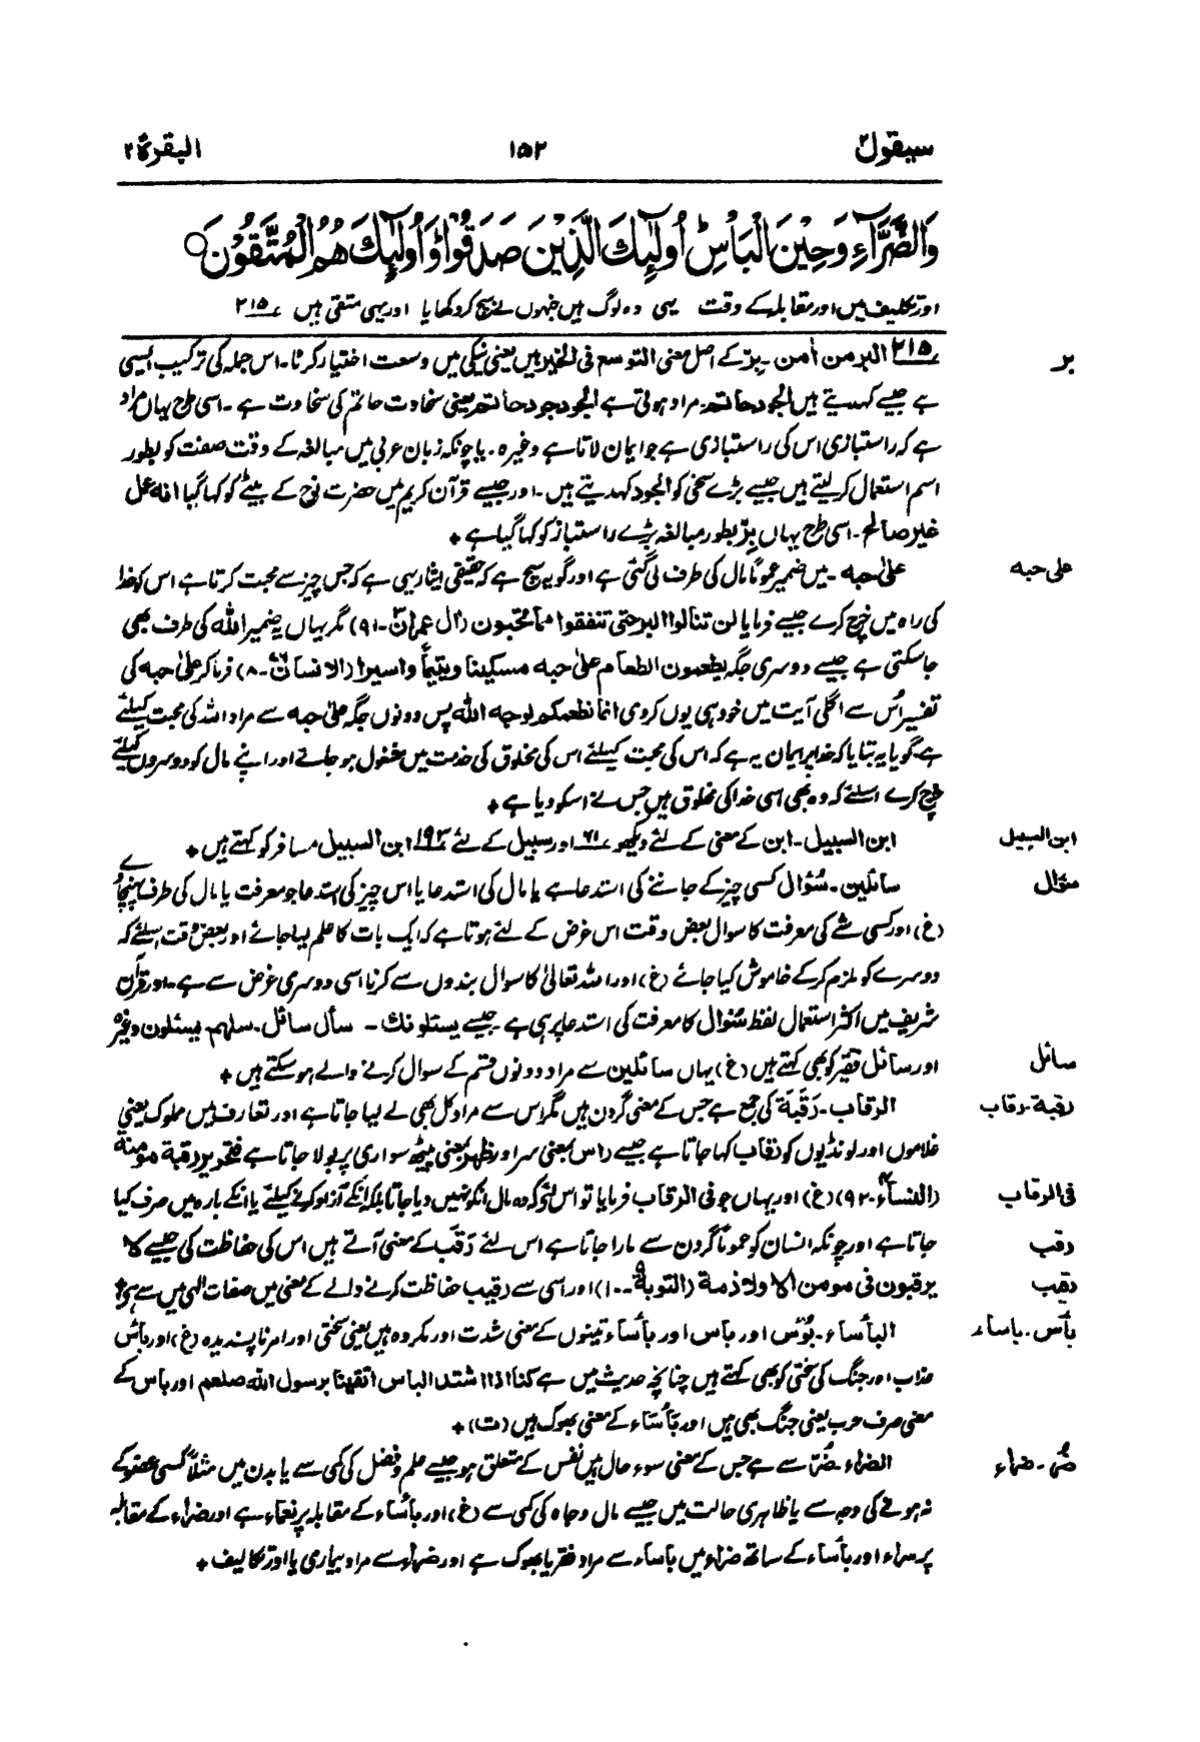 سیقول ۲ ۱۵۲ البقرة ۲
وَالضَّرَّآءِ وَحِيْنَ الْبَاْسِ ؕ اُولٰٓئِكَ الَّذِيْنَ صَدَقُوْا ؕ وَاُولٰٓئِكَ هُمُ الْمُتَّقُوْنَ
اور تکلیف میں اور مقابلہ کے وقت یہی وہ لوگ ہیں جنہوں نے سچ کر دکھایا اور یہی متقی ہیں ۲۱۵
بر
۲۱۵ البر من اٰمن ۔ برّ کے اصل معنی التوسع فی الخیر ہیں یعنی نیکی میں وسعت اختیار کرنا۔ اس جملہ کی ترکیب ایسی
ہے جیسے کہدیتے ہیں الجود حاتم۔ مراد ہوتی ہے الجود جود حاتم یعنی سخاوت حاتم کی سخاوت ہے۔ اسی طرح یہاں مراد
ہے کہ راستبازی اس کی راستبازی ہے جو ایمان لاتا ہے وغیرہ۔ یا چونکہ زبان عربی میں مبالغہ کے وقت صفت کو بطور
اسم استعمال کر لیتے ہیں جیسے بڑے سخی کو الجود کہدیتے ہیں۔ اور جیسے قرآن کریم میں حضرت نوح کے بیٹے کو کہا گیا انه عمل
غیر صالح۔ اسی طرح یہاں برّ بطور مبالغہ بڑے راستباز کو کہا گیا ہے ٭
علی حبه
علیٰ حبه ۔ میں ضمیر عموماً مال کی طرف لی گئی ہے اور گو یہ سچ ہے کہ حقیقی ایثار یہی ہے کہ جس چیز سے محبت کرتا ہے اس کو خدا
کی راہ میں خرچ کرے جیسے فرمایا لن تنالوا البر حتی تنفقوا مما تحبون (اٰل عمران ۳۔ ۹۱) مگر یہاں یہ ضمیر اللہ کی طرف بھی
جاسکتی ہے جیسے دوسری جگہ یطعمون الطعام علی حبه مسکینا ویتیماً واسیرا (الانسان ۷۶۔ ۸) فرما کر علیٰ حبه کی
تفسیر اُس سے اگلی آیت میں خود ہی یوں کردی انما نطعمکم لوجه اللہ پس دونوں جگہ علیٰ حبه سے مراد اللہ کی محبت کیلئے
ہے گویا یہ بتایا کہ خدا پر ایمان یہ ہے کہ اس کی محبت کیلئے اس کی مخلوق کی خدمت میں مشغول ہو جائے اور اپنے مال کو دوسروں کیلئے
خرچ کرے اسلئے کہ وہ بھی اسی خدا کی مخلوق ہیں جس نے اسکو دیا ہے ٭
ابن السبیل
ابن السبیل۔ ابن کے معنی کے لئے دیکھو ۷۱ اور سبیل کے لئے ۱۹۳ ابن السبیل مسافر کو کہتے ہیں ٭
سؤال
سائلین۔ سُؤال کسی چیز کے جاننے کی استدعا ہے یا مال کی استدعا یا اس چیز کی استدعا جو معرفت یا مال کی طرف پہنچائے
(غ) اور کسی شے کی معرفت کا سوال بعض وقت اس غرض کے لئے ہوتا ہے کہ ایک بات کا علم لیا جائے اور بعض وقت اسلئے کہ
دوسرے کو ملزم کر کے خاموش کیا جائے (غ) اور اللہ تعالیٰ کا سوال بندوں سے کرنا اسی دوسری غرض سے ہے۔ اور قرآن
شریف میں اکثر استعمال لفظ سُئوال کا معرفت کی استدعا پر ہی ہے جیسے یسئلونك ۔ سأل سائل۔ سلهم یسئلون وغیرہ
سائل
اور سائل فقیر کو بھی کہتے ہیں (غ) یہاں سائلین سے مراد دونوں قسم کے سوال کرنے والے ہو سکتے ہیں ٭
رقبة۔ رقاب
الرقاب۔ رَقَبَة کی جمع ہے جس کے معنی گردن ہیں مگر اس سے مراد کل بھی لے لیا جاتا ہے اور تعارف میں مملوک یعنی
غلاموں اور لونڈیوں کو رقاب کہا جاتا ہے جیسے راس بمعنی سر اور ظہر بمعنی پیٹھ سواری پر بولا جاتا ہے فتحریر رقبة مؤمنة
فی الرقاب
(النساء ۴۔ ۹۲) (غ) اور یہاں جو فی الرقاب فرمایا تو اس لئے کہ وہ مال انکو نہیں دیا جاتا بلکہ انکے آزاد کرنے کیلئے یا انکے بارہ میں صرف کیا
رقب
جاتا ہے اور چونکہ انسان کو عموماً گردن سے مارا جاتا ہے اس لئے رَقَب کے معنی آتے ہیں اس کی حفاظت کی جیسے لا
رقیب
یرقبون فی مومن الا ولا ذمة (التوبة ۹۔ ۱۰) اور اسی سے رقیب حفاظت کرنے والے کے معنی میں صفات الٰہی میں سے ہے ٭
بأس۔ باساء
البأساء۔ بُؤس اور بأس اور بأساء تینوں کے معنی شدت اور مکروہ ہیں یعنی سختی اور امر ناپسندیدہ (غ) اور بأس
عذاب اور جنگ کی سختی کو بھی کہتے ہیں چنانچہ حدیث میں ہے کنا اذا اشتد الباس اتقینا برسول اللہ صلعم اور باس کے
معنی صرف حرب یعنی جنگ بھی ہیں اور بأساء کے معنی بھوک ہیں (ت) ٭
ضُر۔ ضراء
الضراء۔ ضُرّ سے ہے جس کے معنی سوء حال ہیں نفس کے متعلق ہو جیسے علم و فضل کی کمی سے یا بدن میں مثلاً کسی عضو کے
نہ ہونے کی وجہ سے یا ظاہری حالت میں جیسے مال و جاہ کی کمی سے (غ) اور بأساء کے مقابلہ پر نعماء ہے اور ضراء کے مقابلہ
پر سراء اور بأساء کے ساتھ ضراء میں باساء سے مراد فقر یا بھوک ہے اور ضراء سے مراد بیماری یا اور تکالیف ٭